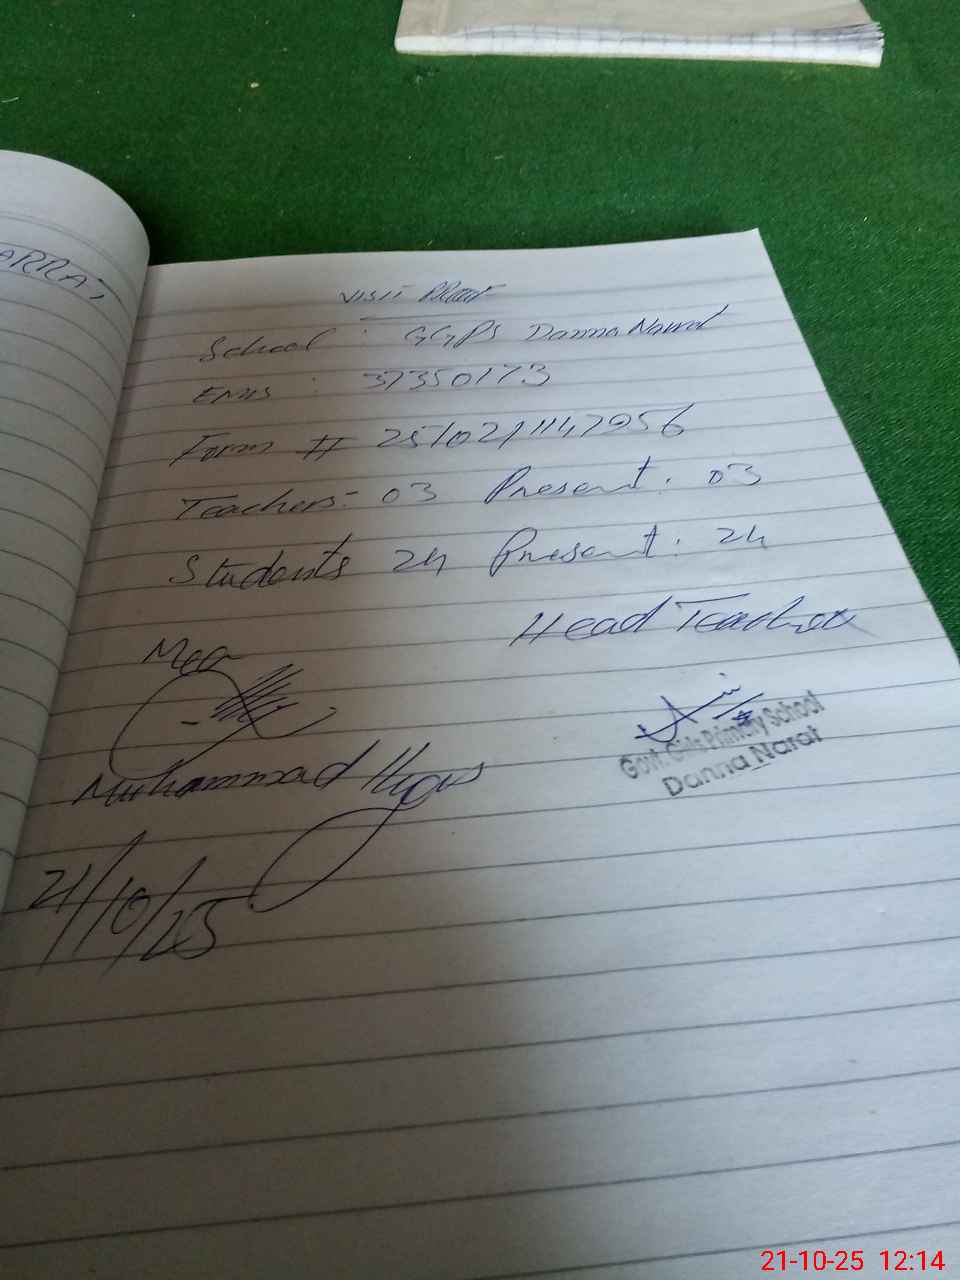 ARRAT
VISIT PROOF
School : GGPS Danna Narrat
EMIS : 37350173
Form # 2510211147056
Teachers:- 03 Present: 03
Students 24 Present: 24
Head Teacher
Mea
Govt. Girls Primary School
Danna Narat
Muhammad
21/10/25
21-10-25 12:14